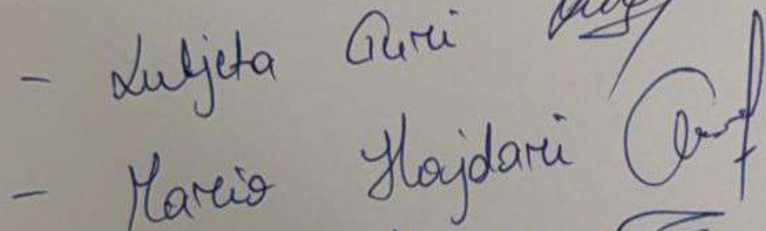 - Luljeta Guri
- Mario Hajdari